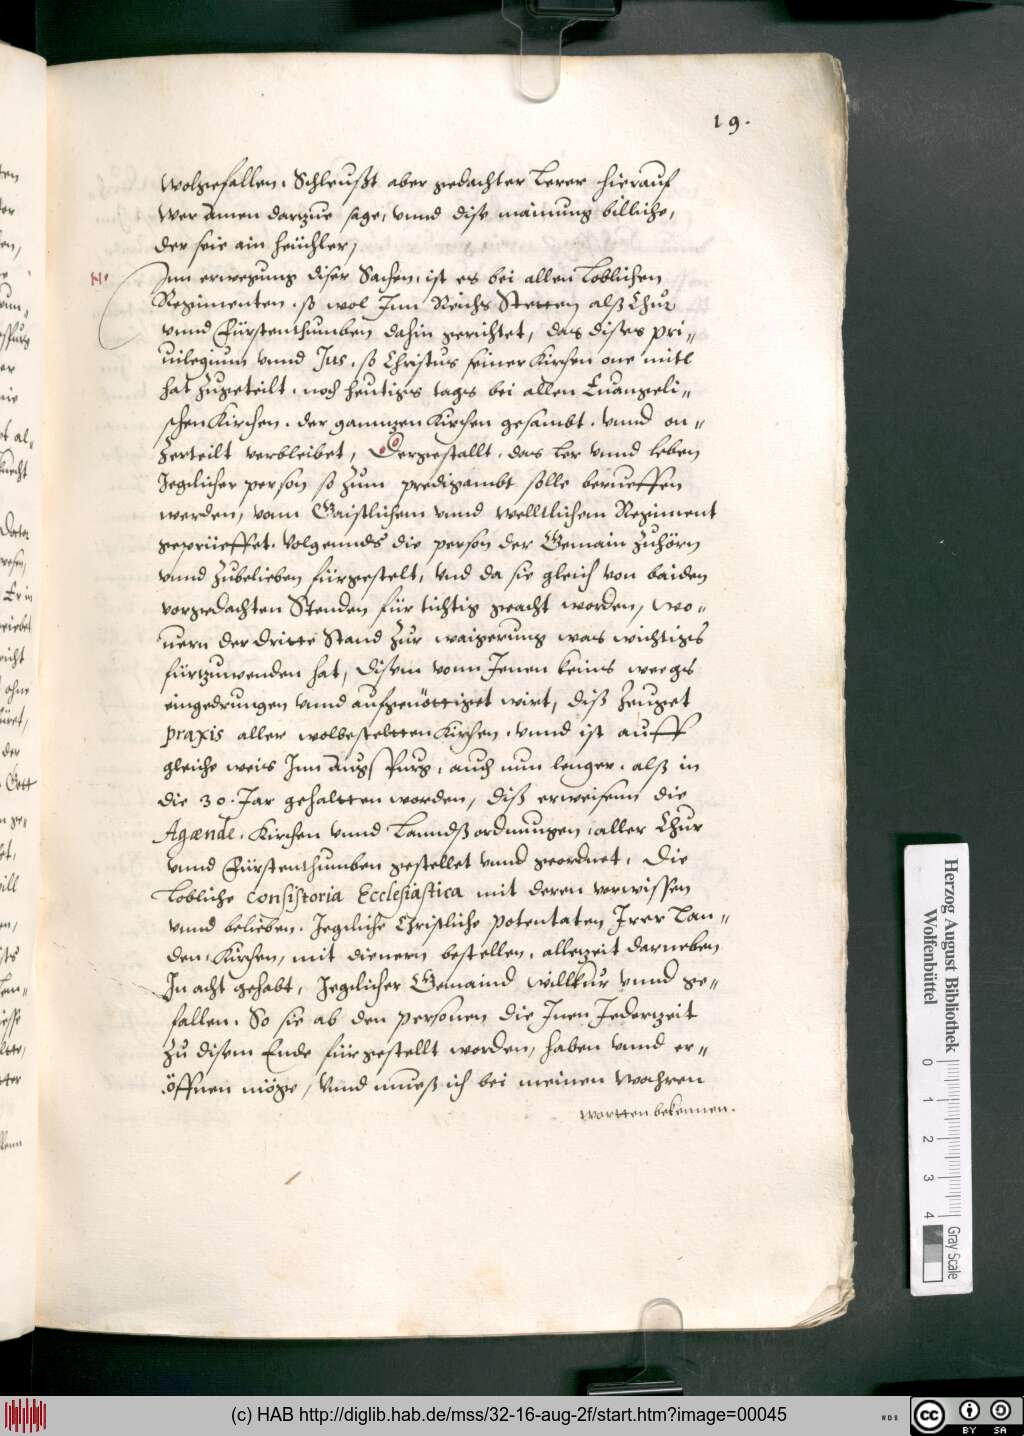 19.
wolgefallen. Schleusst aber gedachter Lerer hierauf
wer Amen darzue sage, vnnd dise mainung billiche,
der seie ain heüchler,
N.
Inn erwegung diser Sachen, ist es bei allen Loblichen
Regimenten, so wol Inn Reichs Stetten alß Chur
vnnd Fürstenthumben dahin gerichtet, das dises pri=
uilegium vnnd Jus, so Christus seiner Kirchen one mitl
hat zugeteilt, noch heutigs tags bei allen Euangeli=
schen Kirchen, der ganntzen Kirchen gesambt, vnnd on=
zerteilt verbleibet, Dergestallt, das Ler vnnd Leben
Jegclicher person so zum predigambt solle berueffen
werden, vom Gaistlichem vnnd welltlichem Regiment
geprüeffet, volgennds die person der Gemain zuhörn
vnnd zubelieben fürgestelt, vnd da sie gleich von baiden
vorgedachten Stenden für tichtig geacht worden, wo=
uern der dritte Stand zur waigerung was wichtigs
fürzuwenden hat, disem vonn Jenen keins weegs
eingedrungen vnnd aufgenöttiget wirt, diß zeuget
praxis aller wolbesteltten Kirchen, vnnd ist auff
gleiche weis Inn Augspurg, auch nun lenger, alß in
die 30. Jar gehaltten worden, diß erweisenn die
Agænde, Kirchen vnnd Lanndßordnungen, aller Chur
vnnd Fürstenthumben gestellet vnnd geordnet, Die
Lobliche Consistoria Ecclesiastica mit deren vorwissen
vnnd belieben, Jegcliche Christliche potentaten Irer Lan=
den Kirchen, mit dienern bestellen, allezeit darneben
In acht gehabt, Jegclicher Gemaind willkur vnnd ge=
fallen, So sie ab den personen die Inen Jederzeit
zu disem Ende fürgestellt worden, haben vnnd er=
öffnen möge, Vnnd mueß ich bei meinen wahren
wortten bekennen.
Herzog August Bibliothek
Wolfenbüttel
0 1 2 3 4
Gray Scale
(c) HAB http://diglib.hab.de/mss/32-16-aug-2f/start.htm?image=00045
WDB
CC BY SA